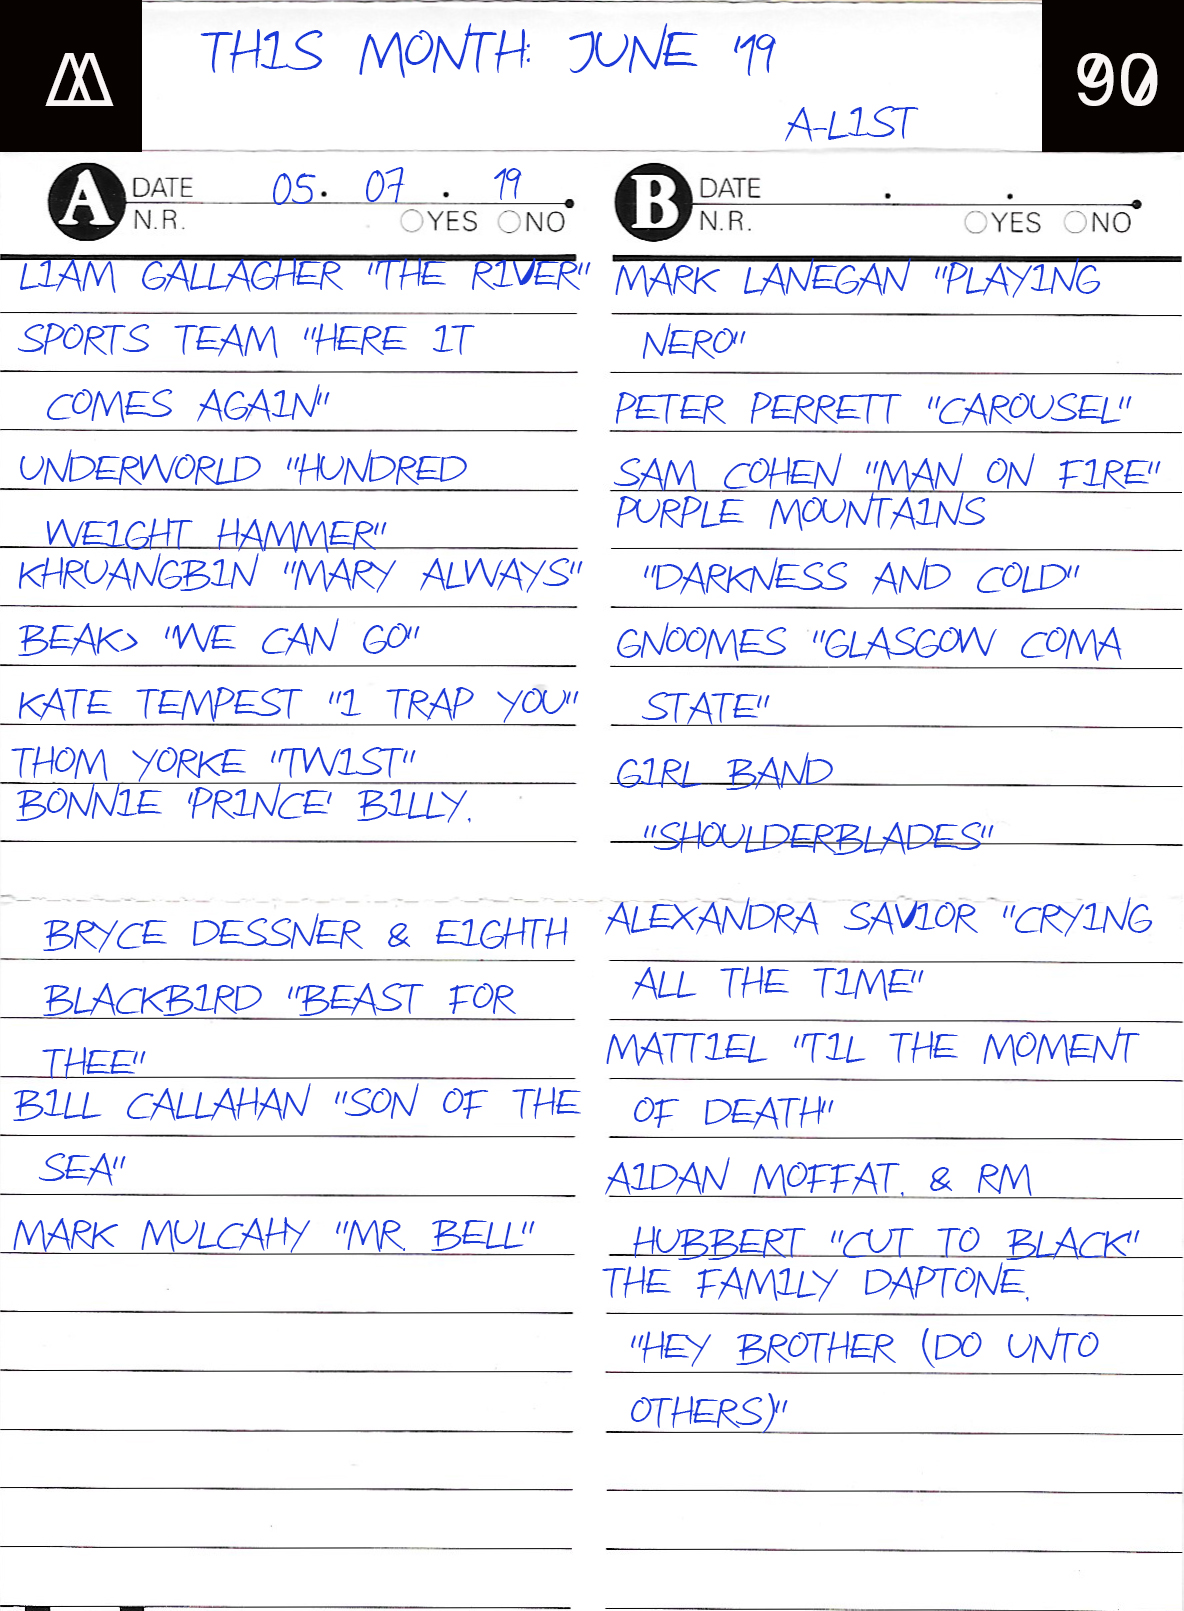 THIS MONTH: JUNE '19
90
A-LIST
A DATE 05. 07 . 19
N.R. YES NO
LIAM GALLAGHER "THE RIVER"
SPORTS TEAM "HERE IT
COMES AGAIN"
UNDERWORLD "HUNDRED
WEIGHT HAMMER"
KHRUANGBIN "MARY ALWAYS"
BEAK> "WE CAN GO"
KATE TEMPEST "I TRAP YOU"
THOM YORKE "TWIST"
BONNIE 'PRINCE' BILLY.
BRYCE DESSNER & EIGHTH
BLACKBIRD "BEAST FOR
THEE"
BILL CALLAHAN "SON OF THE
SEA"
MARK MULCAHY "MR. BELL"
B DATE . .
N.R. YES NO
MARK LANEGAN "PLAYING
NERO"
PETER PERRETT "CAROUSEL"
SAM COHEN "MAN ON FIRE"
PURPLE MOUNTAINS
"DARKNESS AND COLD"
GNOOMES "GLASGOW COMA
STATE"
GIRL BAND
"SHOULDERBLADES"
ALEXANDRA SAVIOR "CRYING
ALL THE TIME"
MATTIEL "'TIL THE MOMENT
OF DEATH"
AIDAN MOFFAT. & RM
HUBBERT "CUT TO BLACK"
THE FAMILY DAPTONE.
"HEY BROTHER (DO UNTO
OTHERS)"